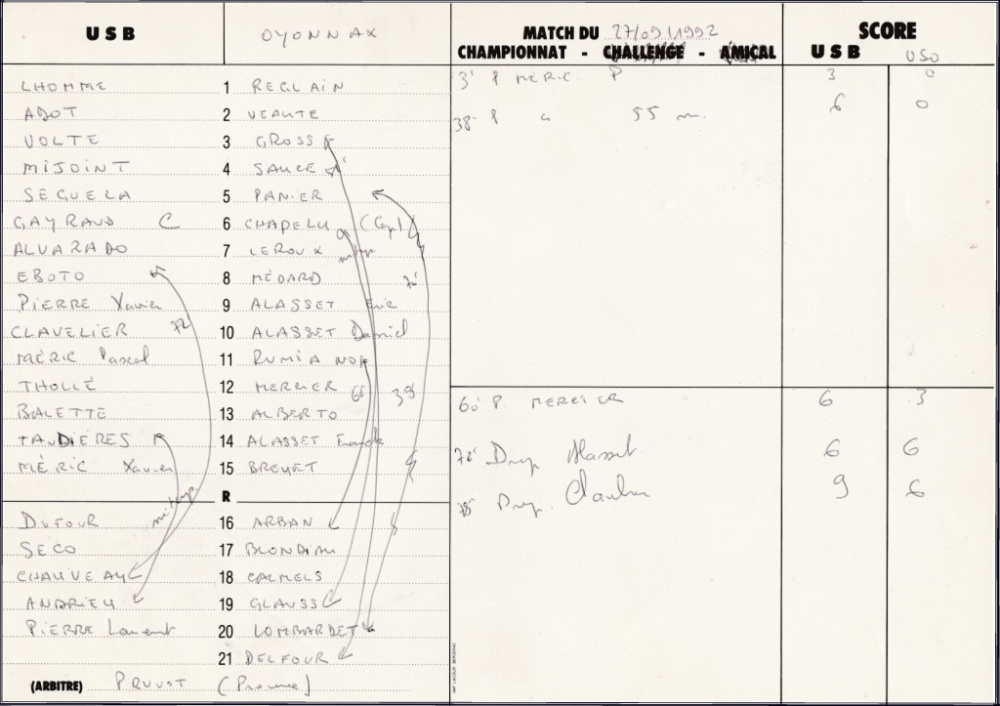 USB OYONNAX MATCH DU 27/09/1992 SCORE
CHAMPIONNAT - CHALLENGE - AMICAL USB USO
LHOMME 1 REGLAIN 3' P MERIC P 3 0
ADOT 2 VEAUTE 38' P " 55 m. 6 0
VOLTE 3 GROSS
MIJOINT 4 SAUCE
SEGUELA 5 PANIER
GAYRAUD C 6 CHAPELU (Cap)
ALVARADO 7 LEROUX mi-temps
EBOTO 8 MÉDARD 72'
PIERRE Xavier 9 ALASSET Eric
CLAVELIER 72 10 ALASSET Daniel
MÉRIC Pascal 11 RUMIANOR
THOLLÉ 12 MERCIER 66 39'
BALETTE 13 ALBERTO 60' P. MERCIER 6 3
TAUDIERES 14 ALASSET Franck 72' Drop Alasset 6 6
MÉRIC Xavier 15 BREUET 78' Drop. 9 6
R
mi-temps
DUFOUR 16 ARBAN
SECO 17 BLONDEAU
CHAUVEAU 18 CALMELS
ANDRIEU 19 GLAUSS
PIERRE Laurent 20 LOMBARDET
21 DELFOUR
(ARBITRE) PRUVOT (Provence)